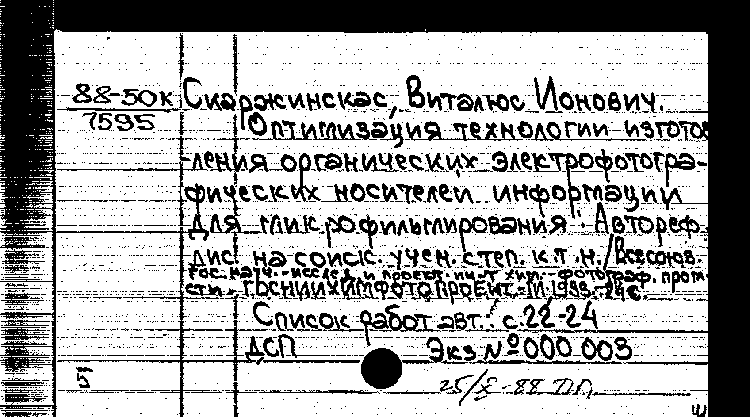 88-50к Скаржинскас, Виталюс Ионович.
7595 Оптимизация технологии изготов
-ления органических электрофотогра-
фических носителей информации
для микрофильмирования: Автореф.
дис. на соиск. учен. степ. к.т.н./Всесоюз.
гос. науч.-исслед. и проект. ин-т хим.-фотограф. пром-
сти. ГОСНИИХИМФОТОПРОЕКТ.-М. 1988.-24с.
Список работ авт.: с.22-24
ДСП Экз №000.003
Б
25/X-88 ДП.